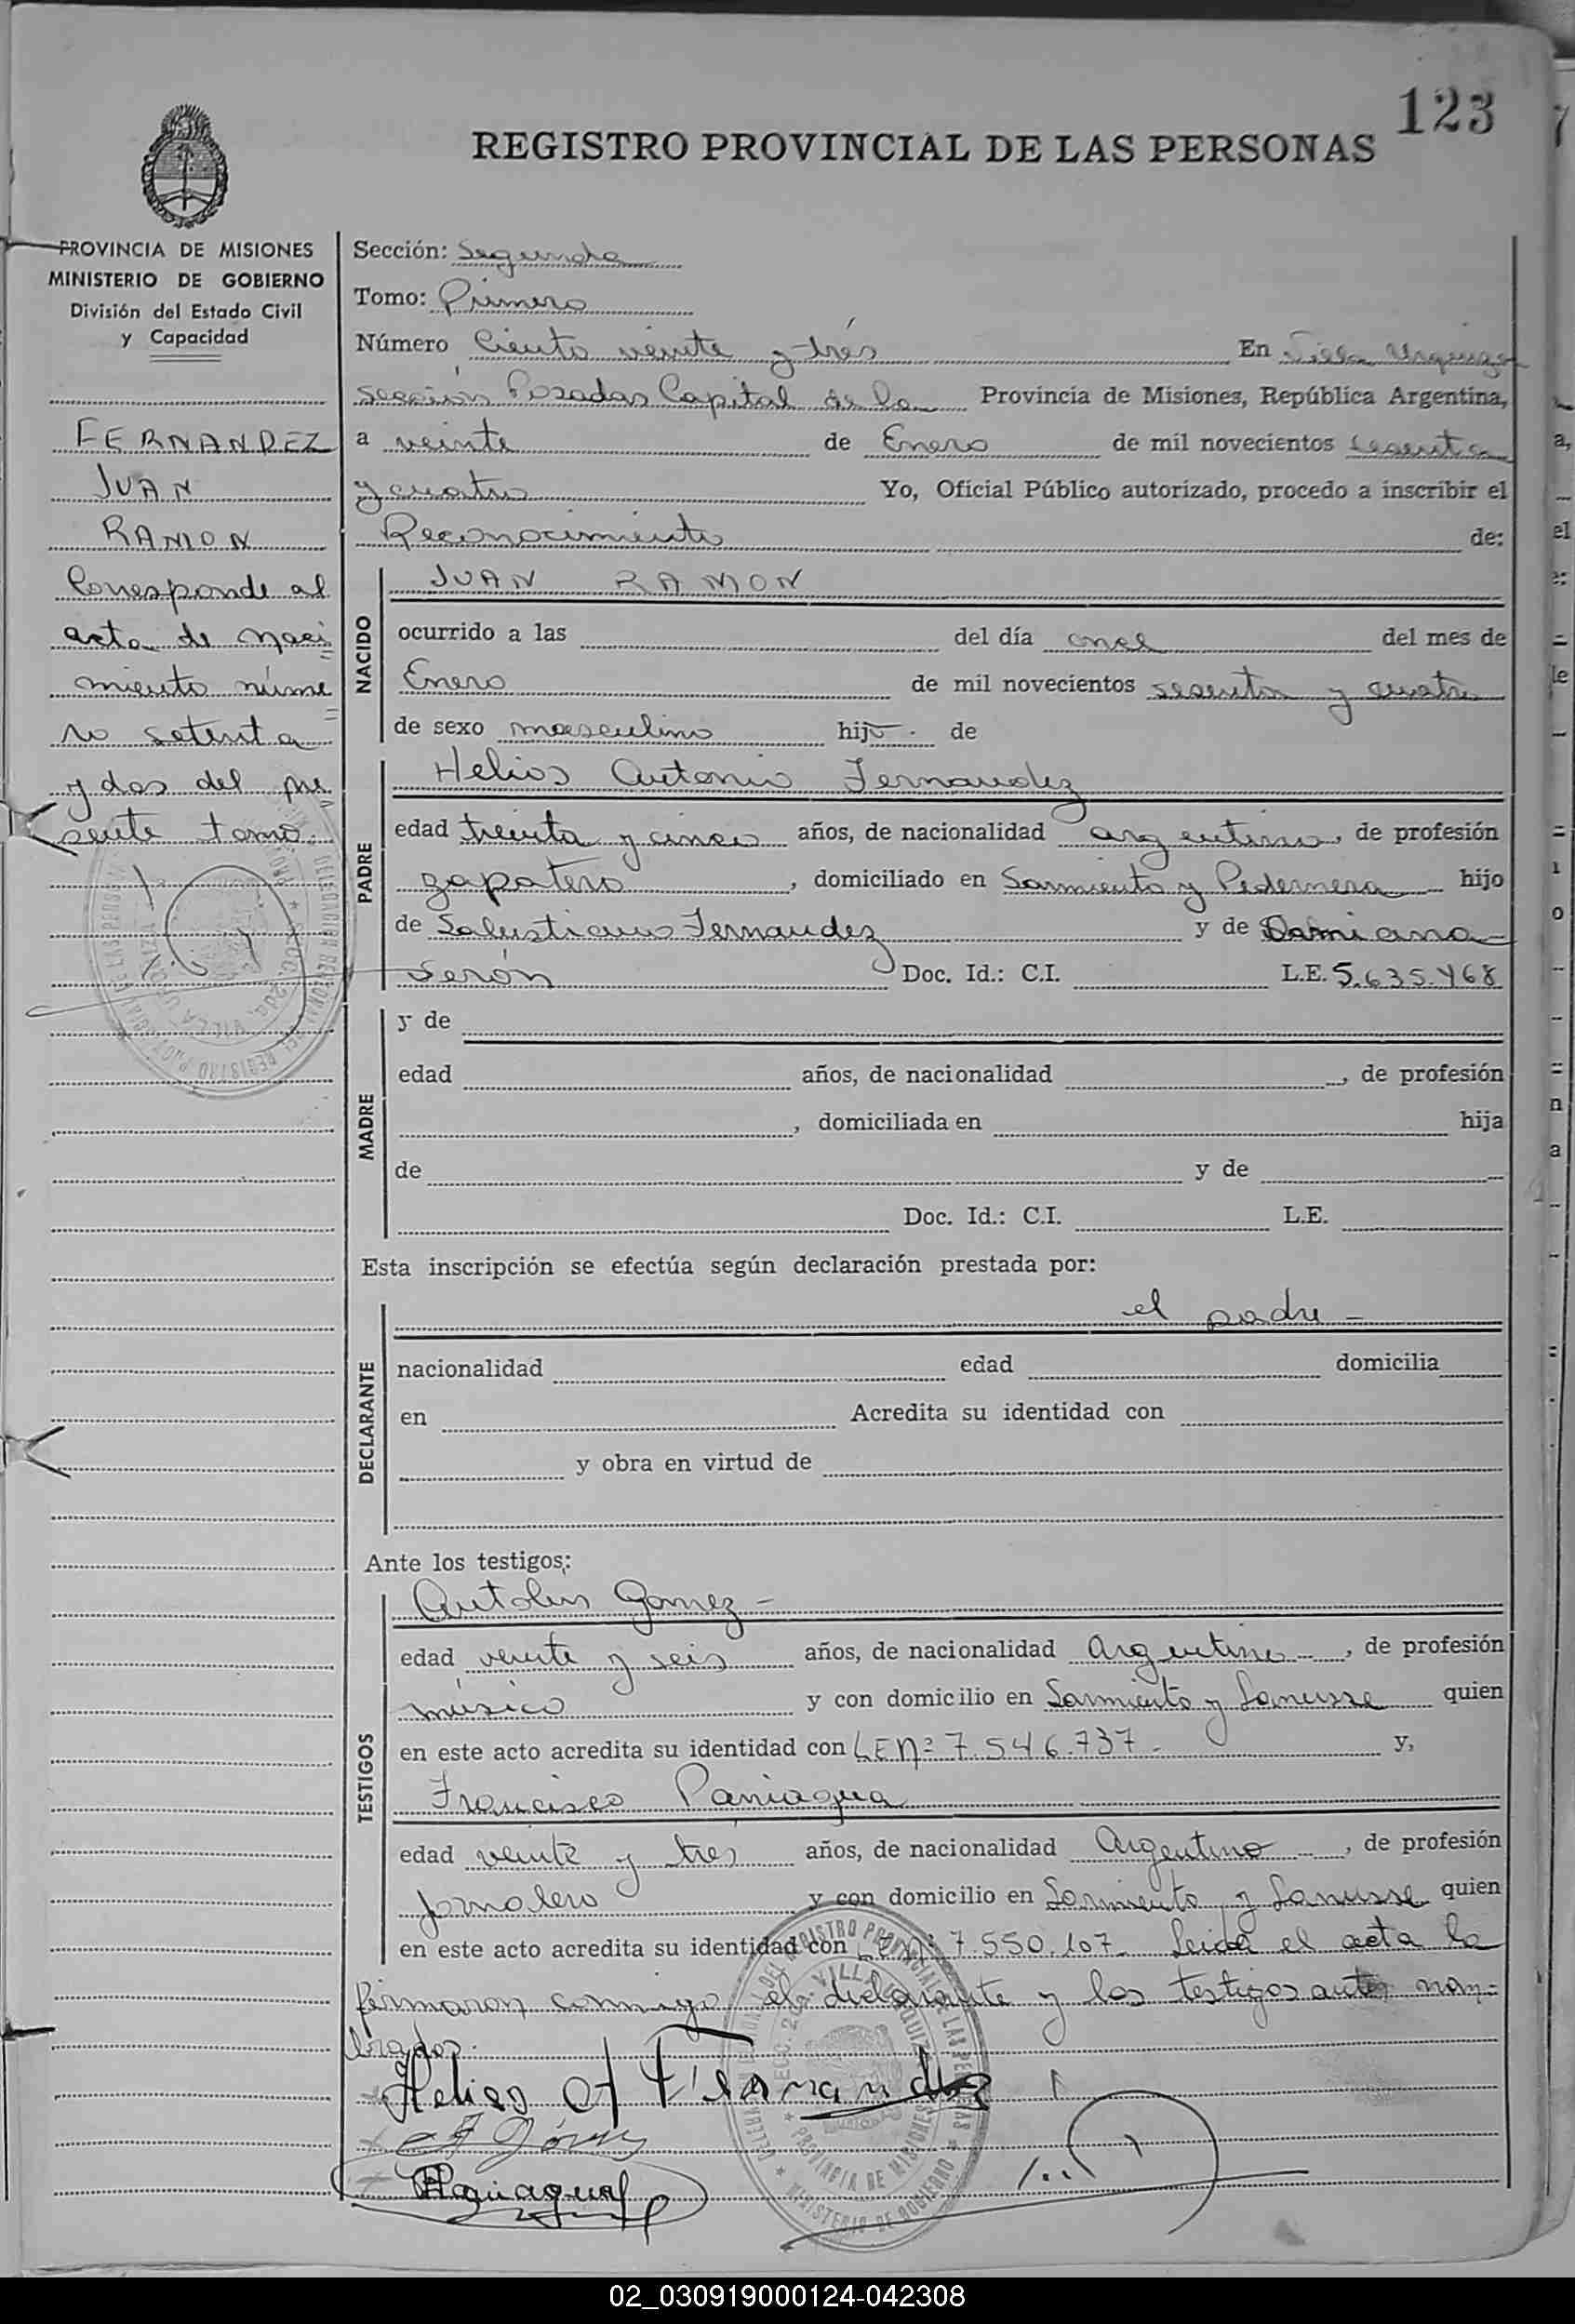 123
REGISTRO PROVINCIAL DE LAS PERSONAS
PROVINCIA DE MISIONES
MINISTERIO DE GOBIERNO
División del Estado Civil
y Capacidad
FERNANDEZ
JUAN
RAMON
Corresponde al
acta de naci
miento núme
ro setenta
y dos del pre
sente tomo.
Sección: Segunda
Tomo: Primero
Número Ciento veinte y trés En Villa Urquiza
sección Posadas Capital de la Provincia de Misiones, República Argentina,
a veinte de Enero de mil novecientos sesenta
y cuatro Yo, Oficial Público autorizado, procedo a inscribir el
Reconocimiento de:
NACIDO
JUAN RAMON
ocurrido a las del día once del mes de
Enero de mil novecientos sesenta y cuatro
de sexo masculino hijo. de
PADRE
Helios Antonio Fernandez
edad treinta y cinco años, de nacionalidad argentino, de profesión
zapatero, domiciliado en Sarmiento y Pedernera hijo
de Salustiano Fernandez y de Damiana
Serón Doc. Id.: C.I. L.E. 5.635.468
MADRE
y de
edad años, de nacionalidad , de profesión
, domiciliada en hija
de y de
Doc. Id.: C.I. L.E.
Esta inscripción se efectúa según declaración prestada por:
DECLARANTE
el padre -
nacionalidad edad domicilia
en Acredita su identidad con
y obra en virtud de
Ante los testigos:
TESTIGOS
Antolin Gomez -
edad veinte y seis años, de nacionalidad Argentino, de profesión
músico y con domicilio en Sarmiento y Lanusse quien
en este acto acredita su identidad con LE Nº 7.546.737. y,
Francisco Paniagua
edad veinte y tres años, de nacionalidad Argentino, de profesión
jornalero y con domicilio en Sarmiento y Lanusse quien
en este acto acredita su identidad con LE Nº 7.550.107. Leida el acta la
firmaron conmigo el declarante y los testigos antes nom-
brados.
Helios A Fernandez
Gómez
Paniagua
02_030919000124-042308